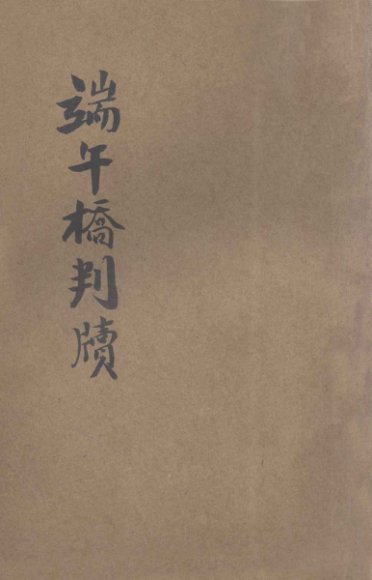 端午橋判牘